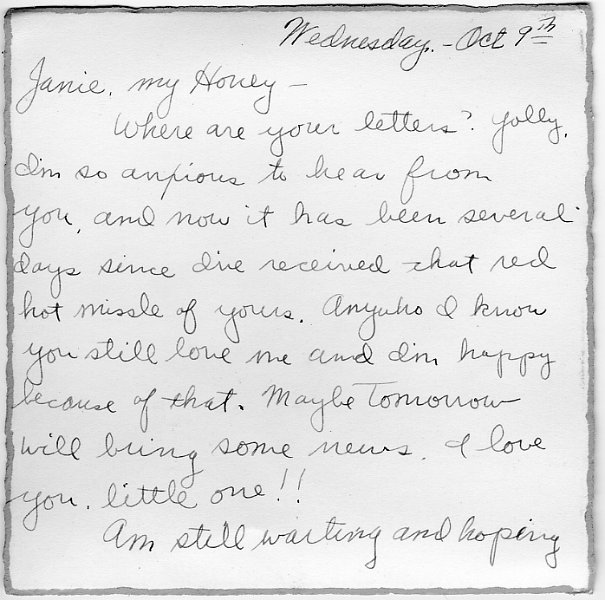 Wednesday. - Oct 9th
Janie, my Honey -
Where are your letters? Golly,
I'm so anxious to hear from
you, and now it has been several
days since I've received that red
hot missle of yours. Anywho I know
you still love me and I'm happy
because of that. Maybe Tomorrow
will bring some news. I love
you, little one!!
Am still waiting and hoping